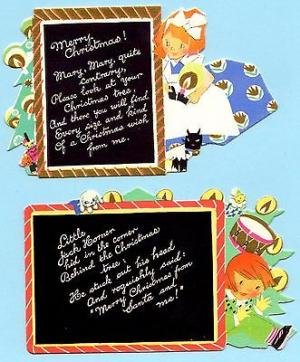 Merry
Christmas!
Mary, Mary, quite
contrary,
Please look at your
Christmas tree,
And there you will find
Every size and kind
Of a Christmas wish
from me.
Little
Jack Horner
hid in the corner
Behind the Christmas
tree;
He stuck out his head
And roguishly said:
"Merry Christmas from
Santa and
me!"